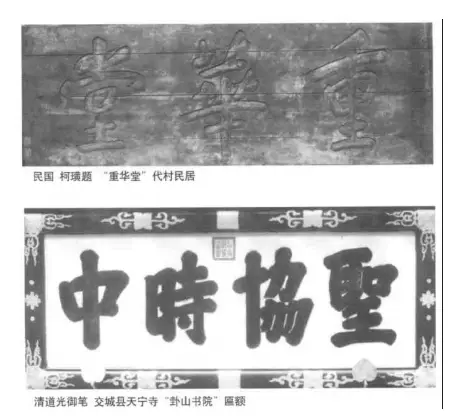 重華堂
民国 柯璜题 “重华堂”代村民居
聖協時中
清道光御笔 交城县天宁寺“卦山书院”匾额